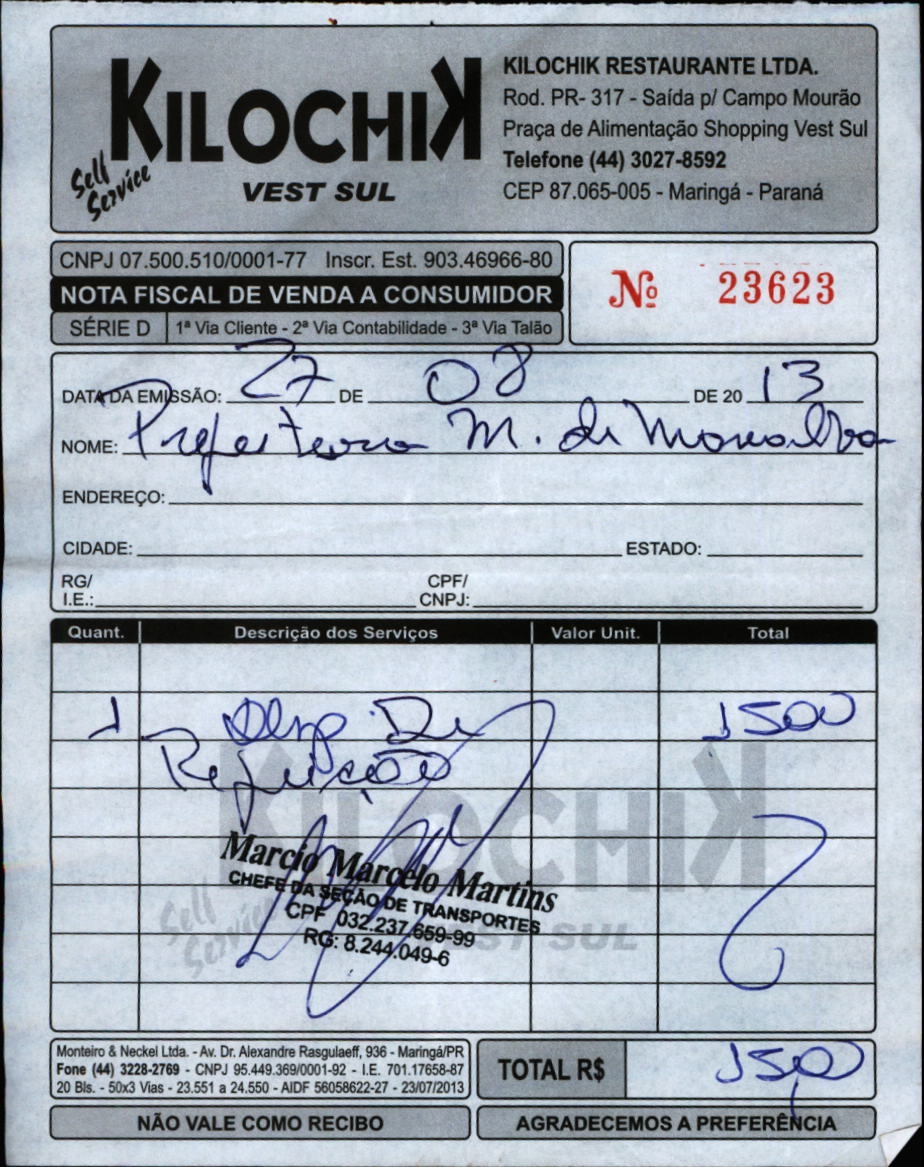 KILOCHIK
Self Service
VEST SUL
KILOCHIK RESTAURANTE LTDA.
Rod. PR- 317 - Saída p/ Campo Mourão
Praça de Alimentação Shopping Vest Sul
Telefone (44) 3027-8592
CEP 87.065-005 - Maringá - Paraná
CNPJ 07.500.510/0001-77 Inscr. Est. 903.46966-80
NOTA FISCAL DE VENDA A CONSUMIDOR
SÉRIE D 1ª Via Cliente - 2ª Via Contabilidade - 3ª Via Talão
Nº 23623
DATA DA EMISSÃO: 27 DE 08 DE 20 13
NOME: Prefeitura M. de
ENDEREÇO:
CIDADE: ESTADO:
RG/ I.E.: CPF/ CNPJ:
Quant. Descrição dos Serviços Valor Unit. Total
1 Desp. De 1500
Refeição
KILOCHIK
Self Service
VEST SUL
Marcio Marcelo Martins
CHEFE DA SEÇÃO DE TRANSPORTES
CPF 032.237.659-99
RG: 8.244.049-6
Monteiro & Neckel Ltda. - Av. Dr. Alexandre Rasgulaeff, 936 - Maringá/PR
Fone (44) 3228-2769 - CNPJ 95.449.369/0001-92 - I.E. 701.17658-87
20 Bls. - 50x3 Vias - 23.551 a 24.550 - AIDF 56058622-27 - 23/07/2013
TOTAL R$ 1500
NÃO VALE COMO RECIBO
AGRADECEMOS A PREFERÊNCIA